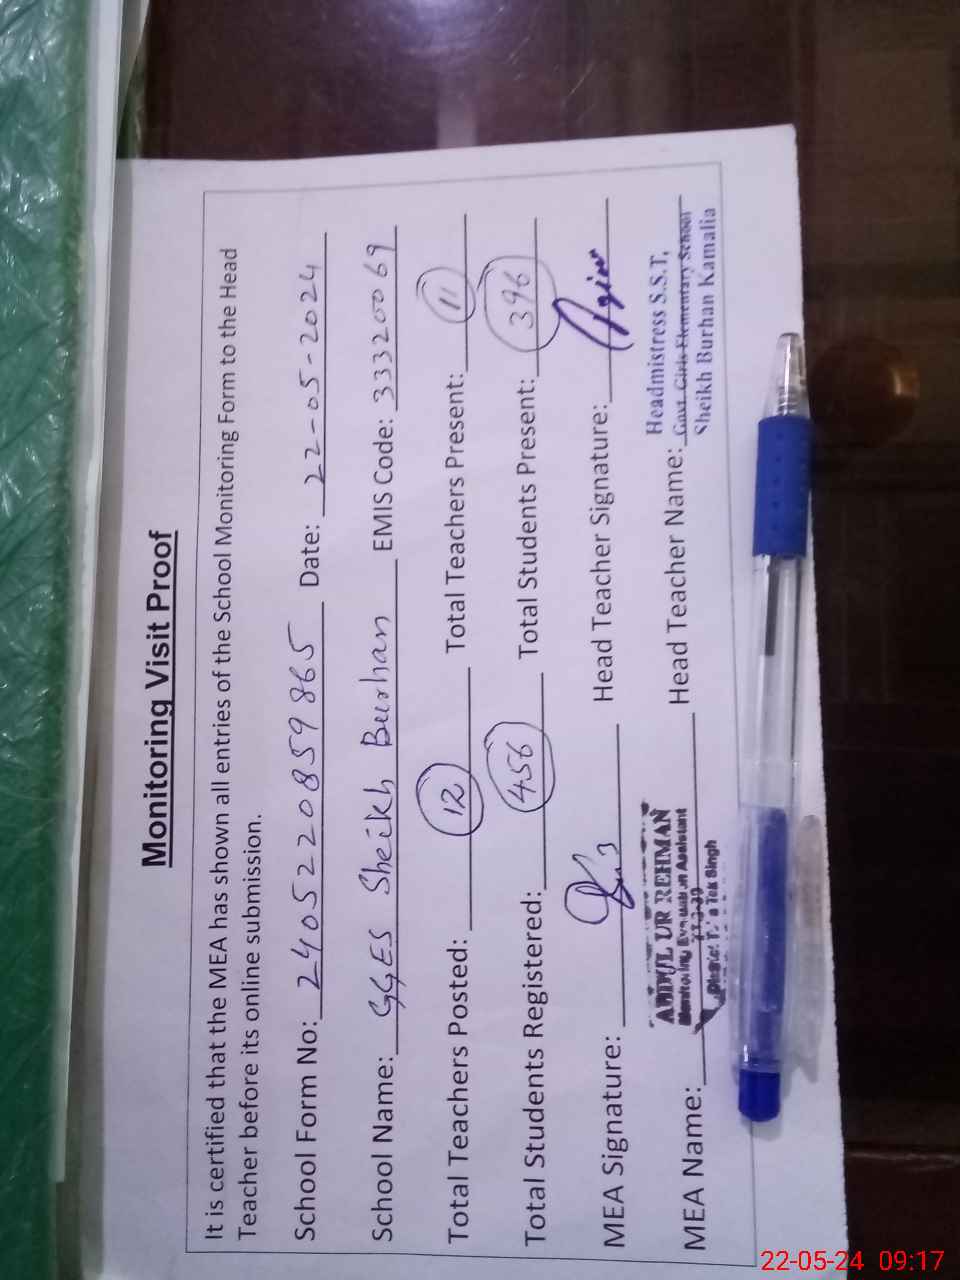 Monitoring Visit Proof
It is certified that the MEA has shown all entries of the School Monitoring Form to the Head
Teacher before its online submission.
School Form No: 2405220859865 Date: 22-05-2024
School Name: GGES Sheikh Burhan EMIS Code: 33320069
Total Teachers Posted: 12 Total Teachers Present: 11
Total Students Registered: 456 Total Students Present: 396
MEA Signature: Head Teacher Signature:
MEA Name: ABDUL UR REHMAN Head Teacher Name: Headmistress S.S.T,
Monitoring Evaluation Assistant Govt. Girls Elementary School
District Tek Singh Sheikh Burhan Kamalia
22-05-24 09:17